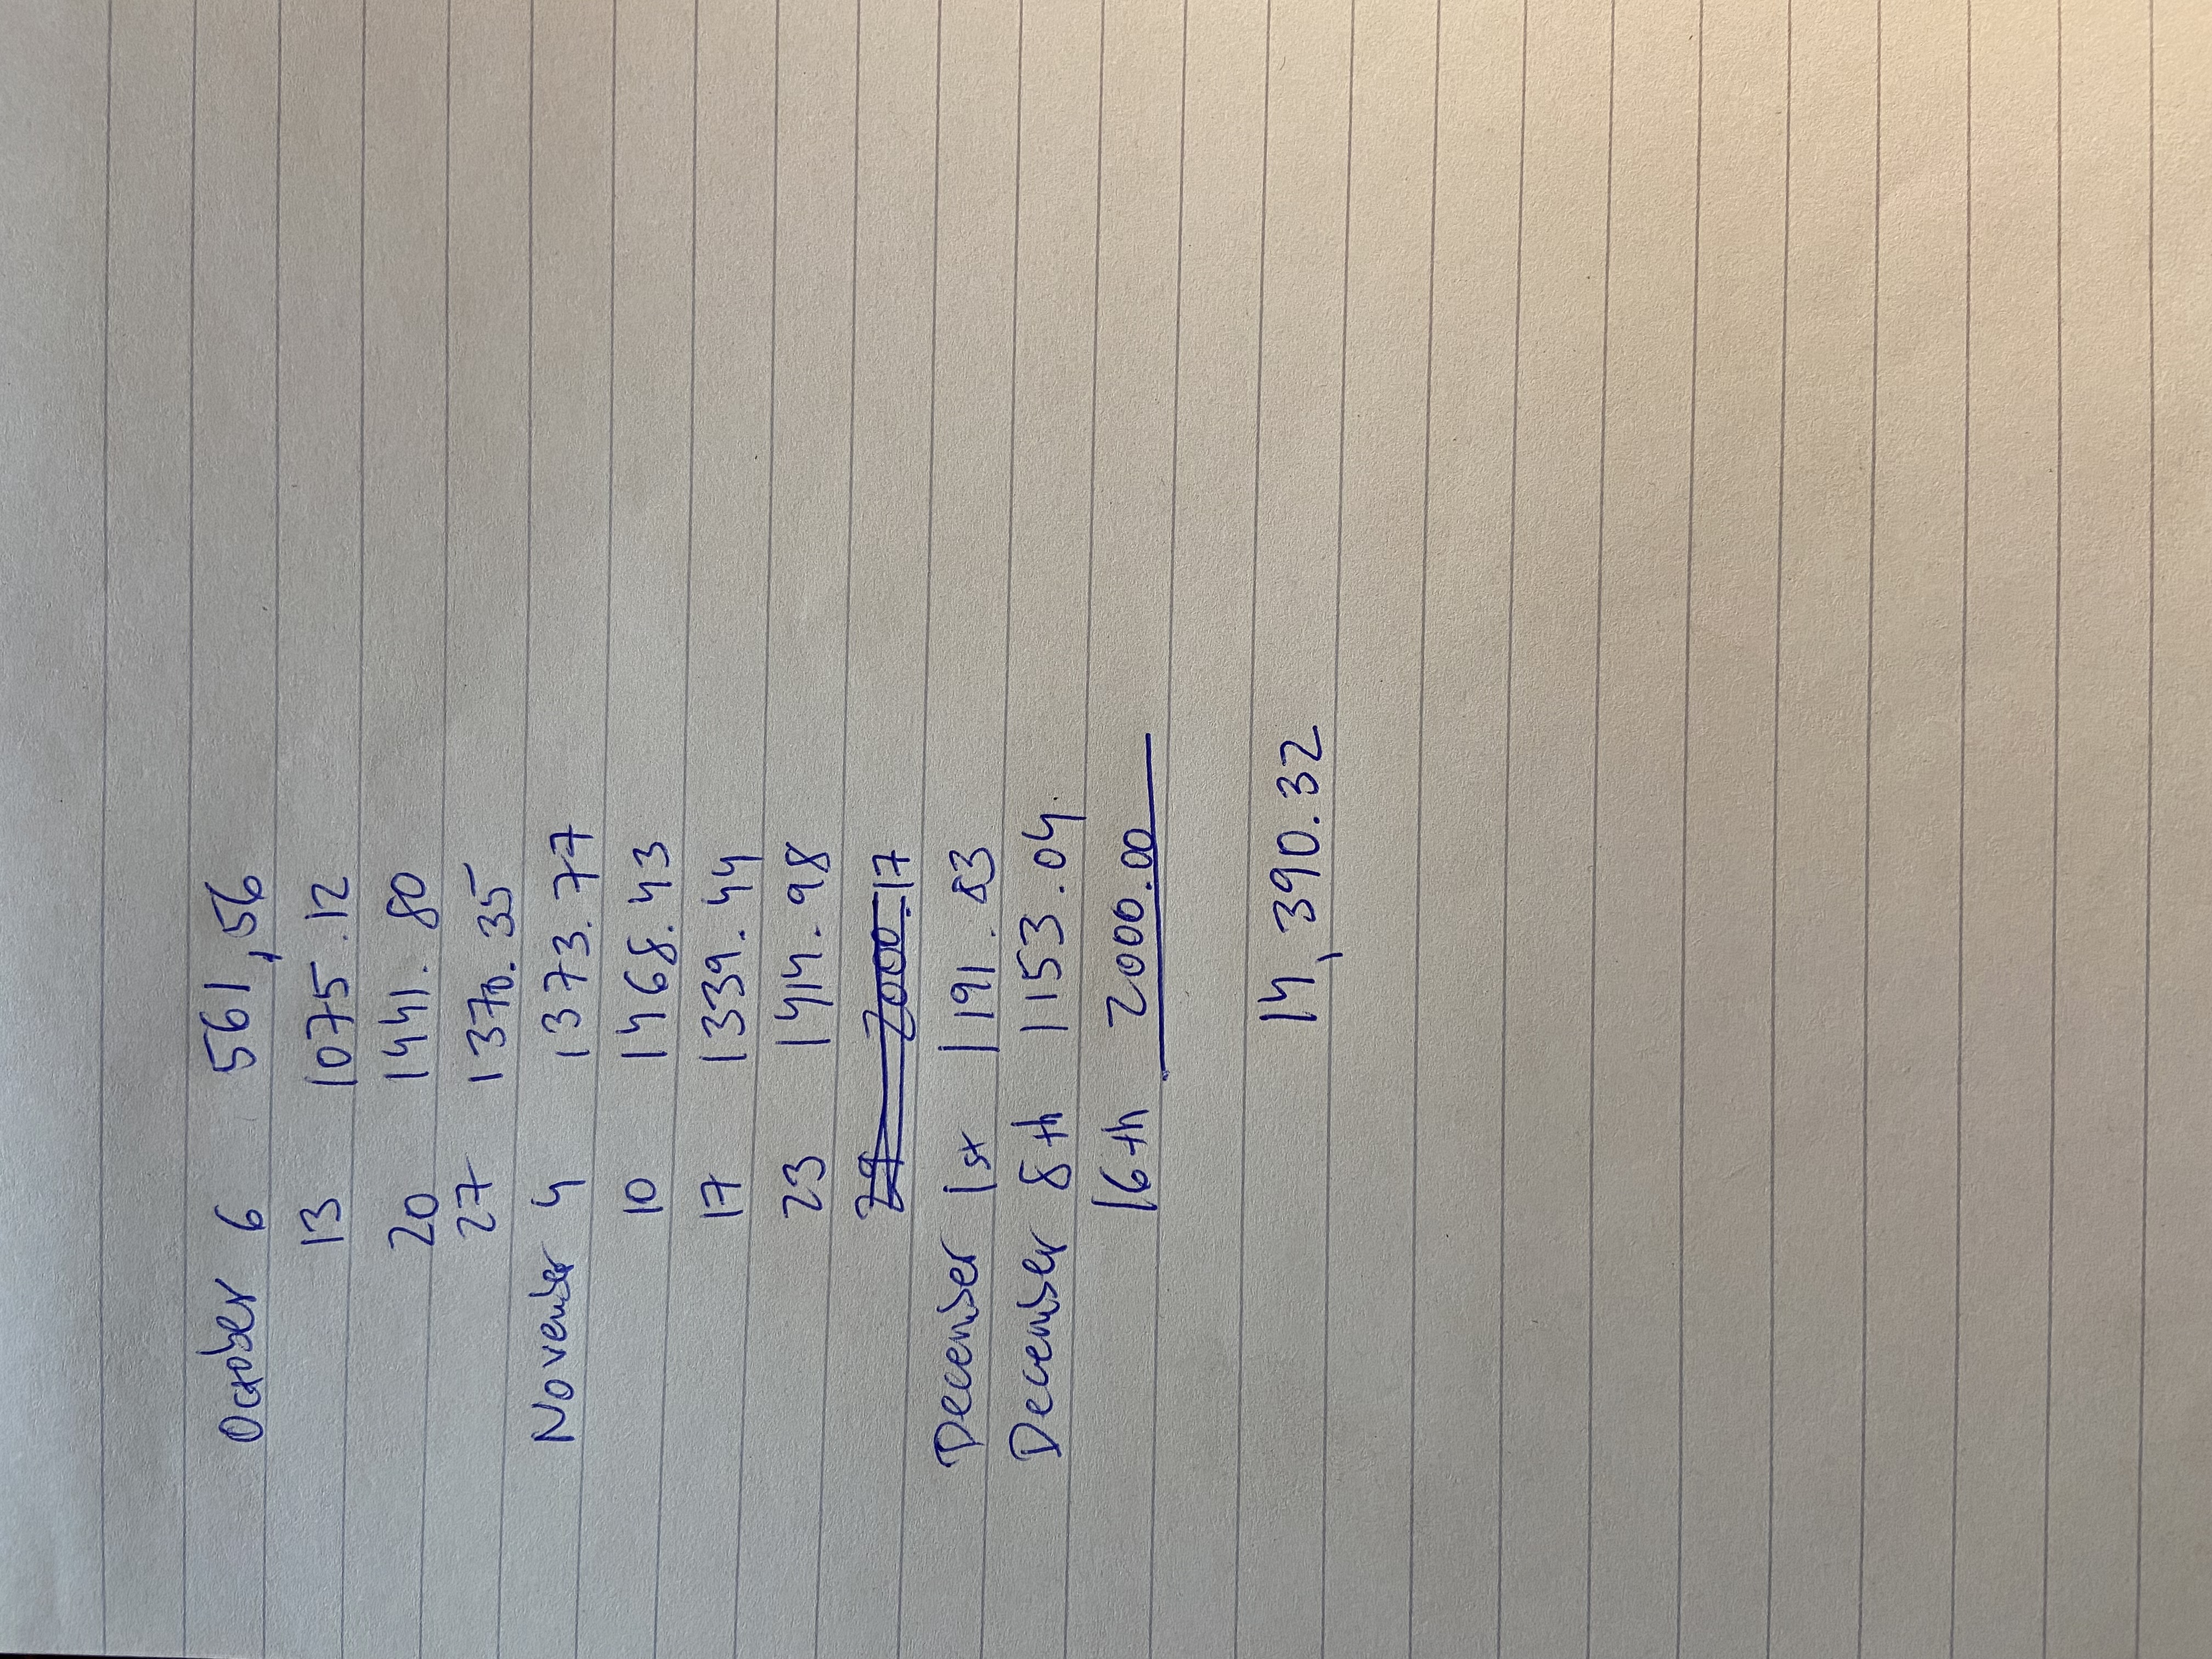 October 6 561,56
13 1075.12
20 1441.80
27 1370.35
November 4 1373.77
10 1468.43
17 1339.44
23 1414.98
29 2000.17
December 1st 1191.83
December 8th 1153.04.
16th 2000.00
14,390.32